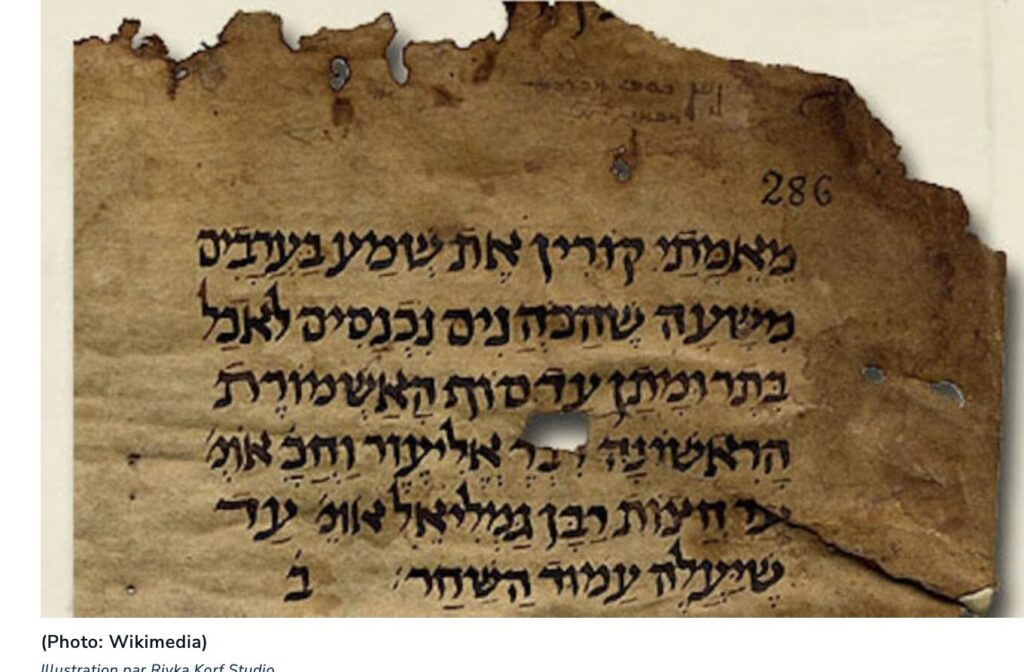 286
מאמתי קורין את שמע בערבים
משעה שהכהנים נכנסים לאכל
בתרומתן עד סוף האשמורת
הראשונה אליעזר וחכ׳ אומ׳
עד חצות רבן גמליאל אומ׳ עד
שיעלה עמוד השחר׳ ב׳
(Photo: Wikimedia)
Illustration par Rivka Korf Studio